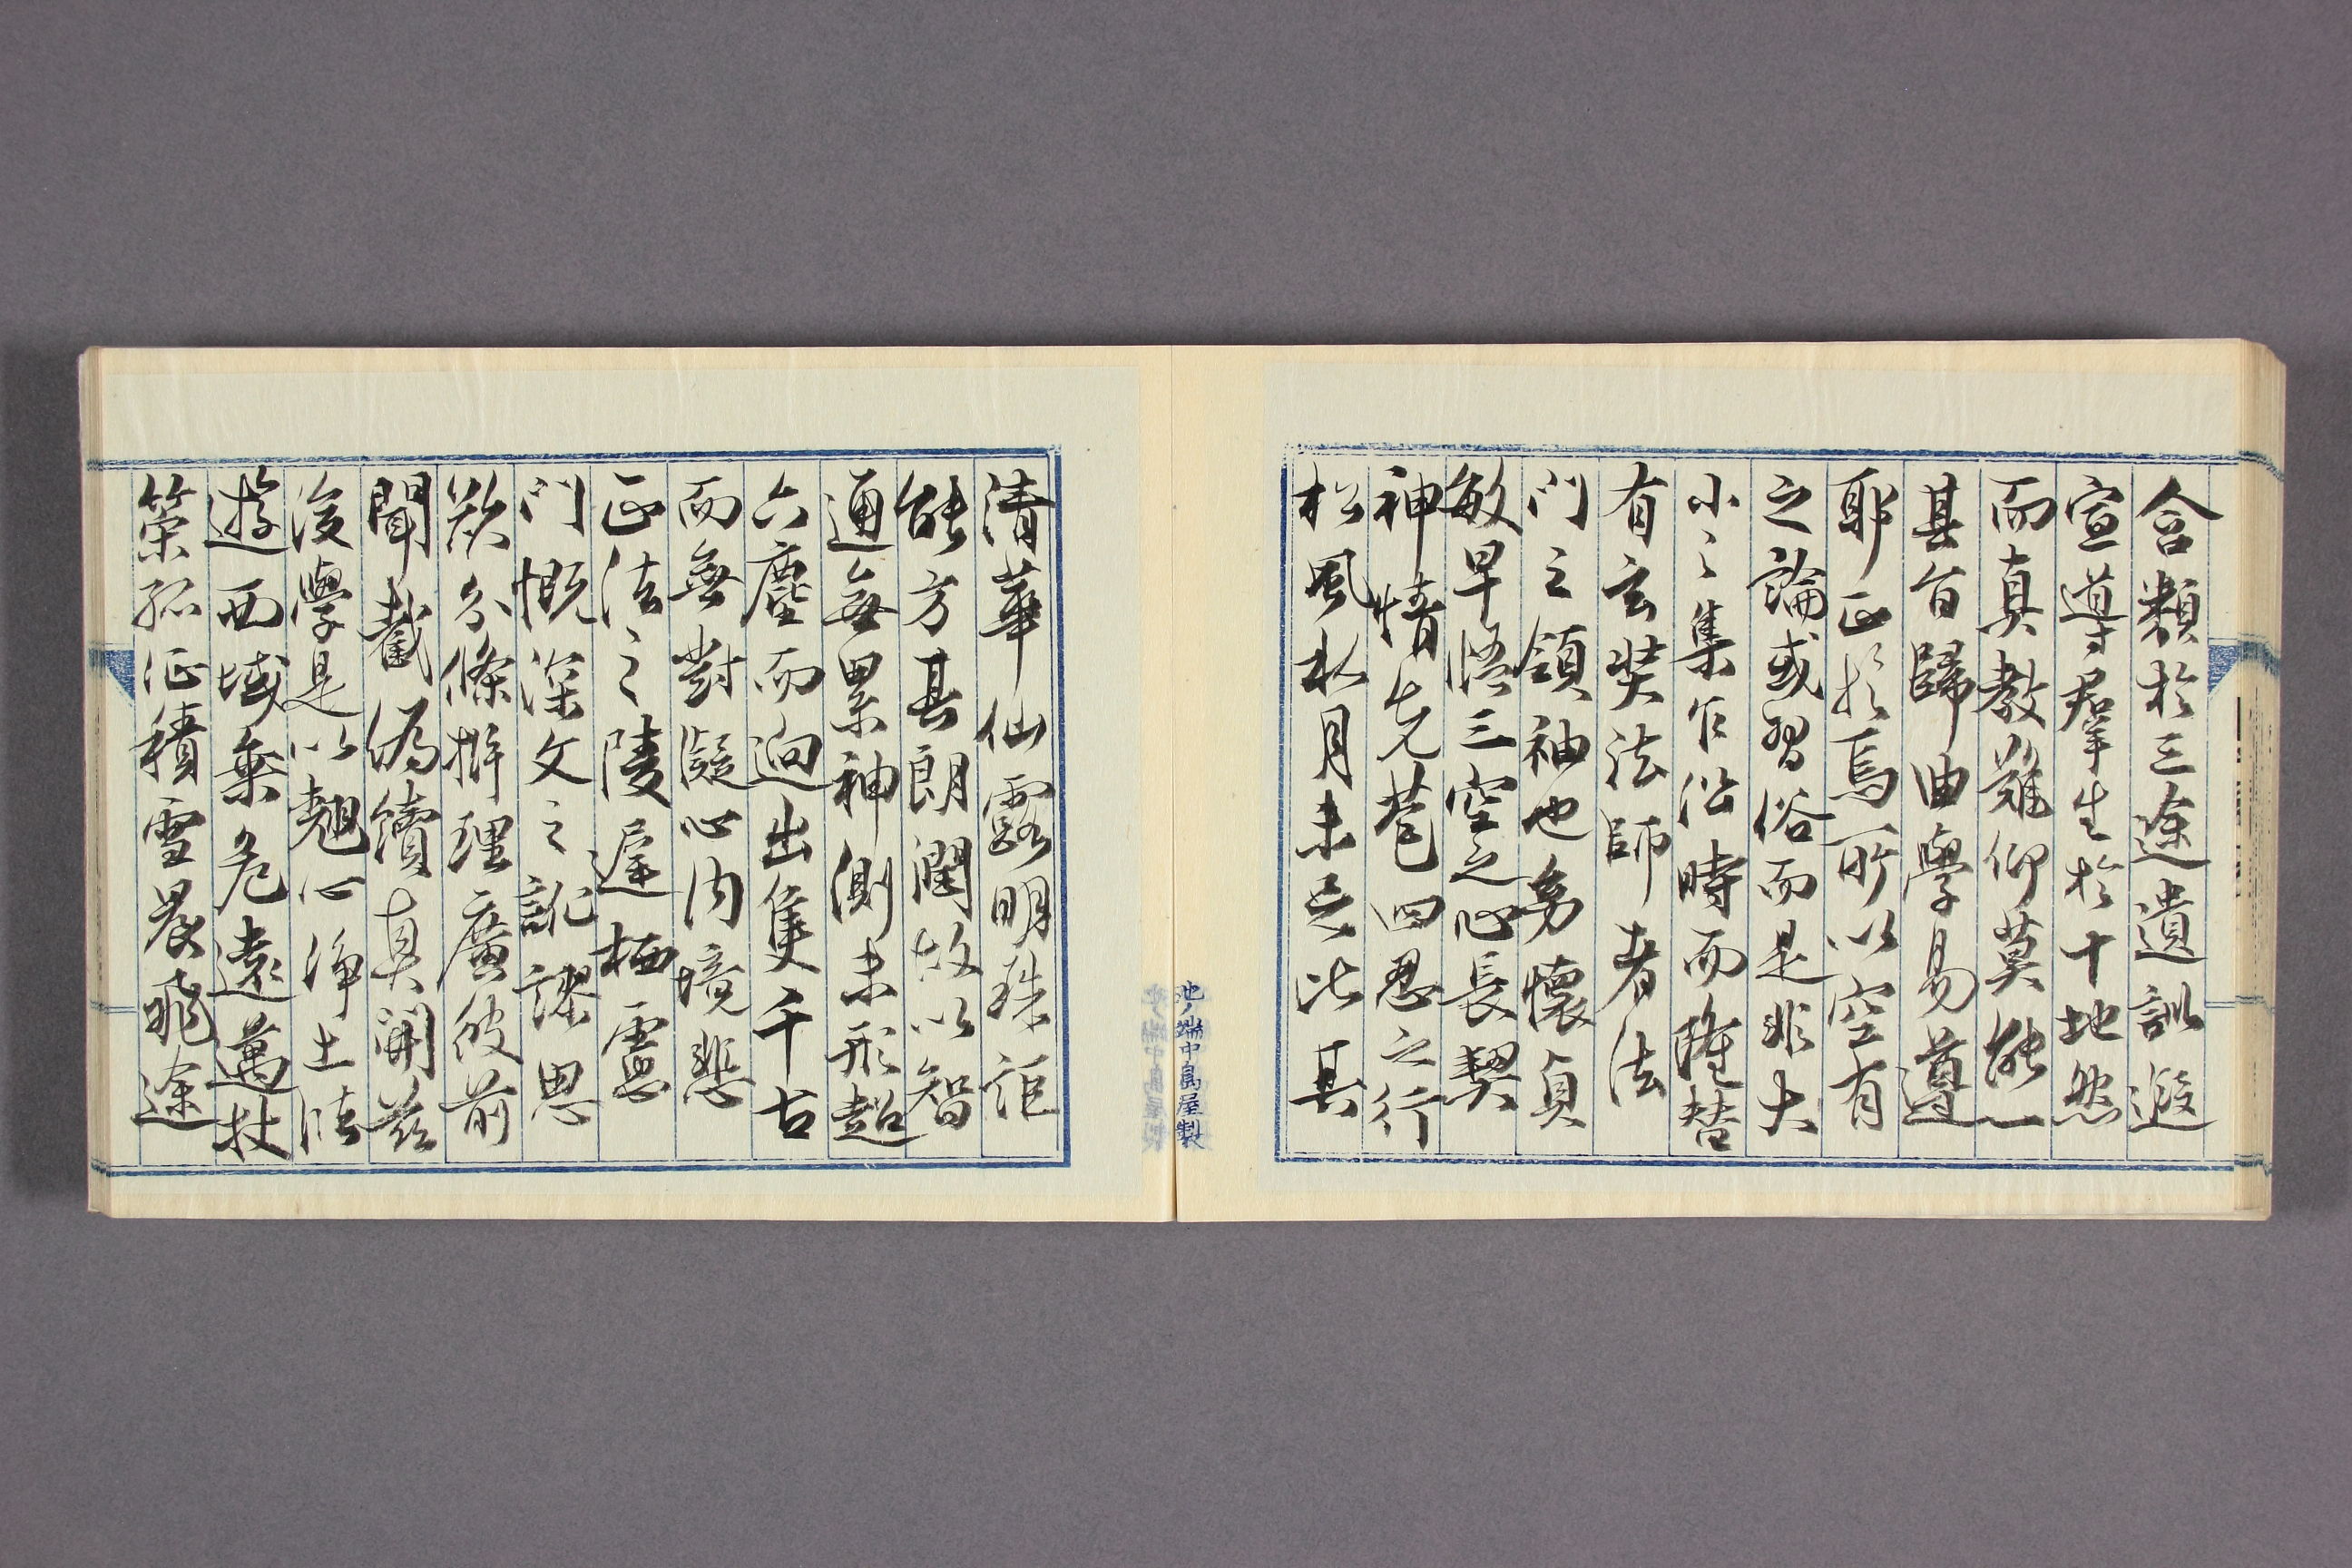 含類於三途遺訓遐
宣導群生於十地然
而真教難仰莫能一
其旨歸曲學易遵
耶正於焉所以空有
之論或習俗而是非大
小之集乍沿時而隆替
有玄奘法師者法
門之領袖也幼懷貞
敏早悟三空之心長契
神情先苞四忍之行
松風水月未足比其
清華仙露明珠詎
能方其朗潤故以智
通無累神測未形超
六塵而迥出隻千古
而無對凝心內境悲
正法之陵遲栖慮
門慨深文之訛謬思
欲分條析理廣彼前
聞截偽續真開茲
後學是以翹心淨土法
遊西域乗危遠邁杖
策孤征積雪晨飛途
池ノ端中島屋製